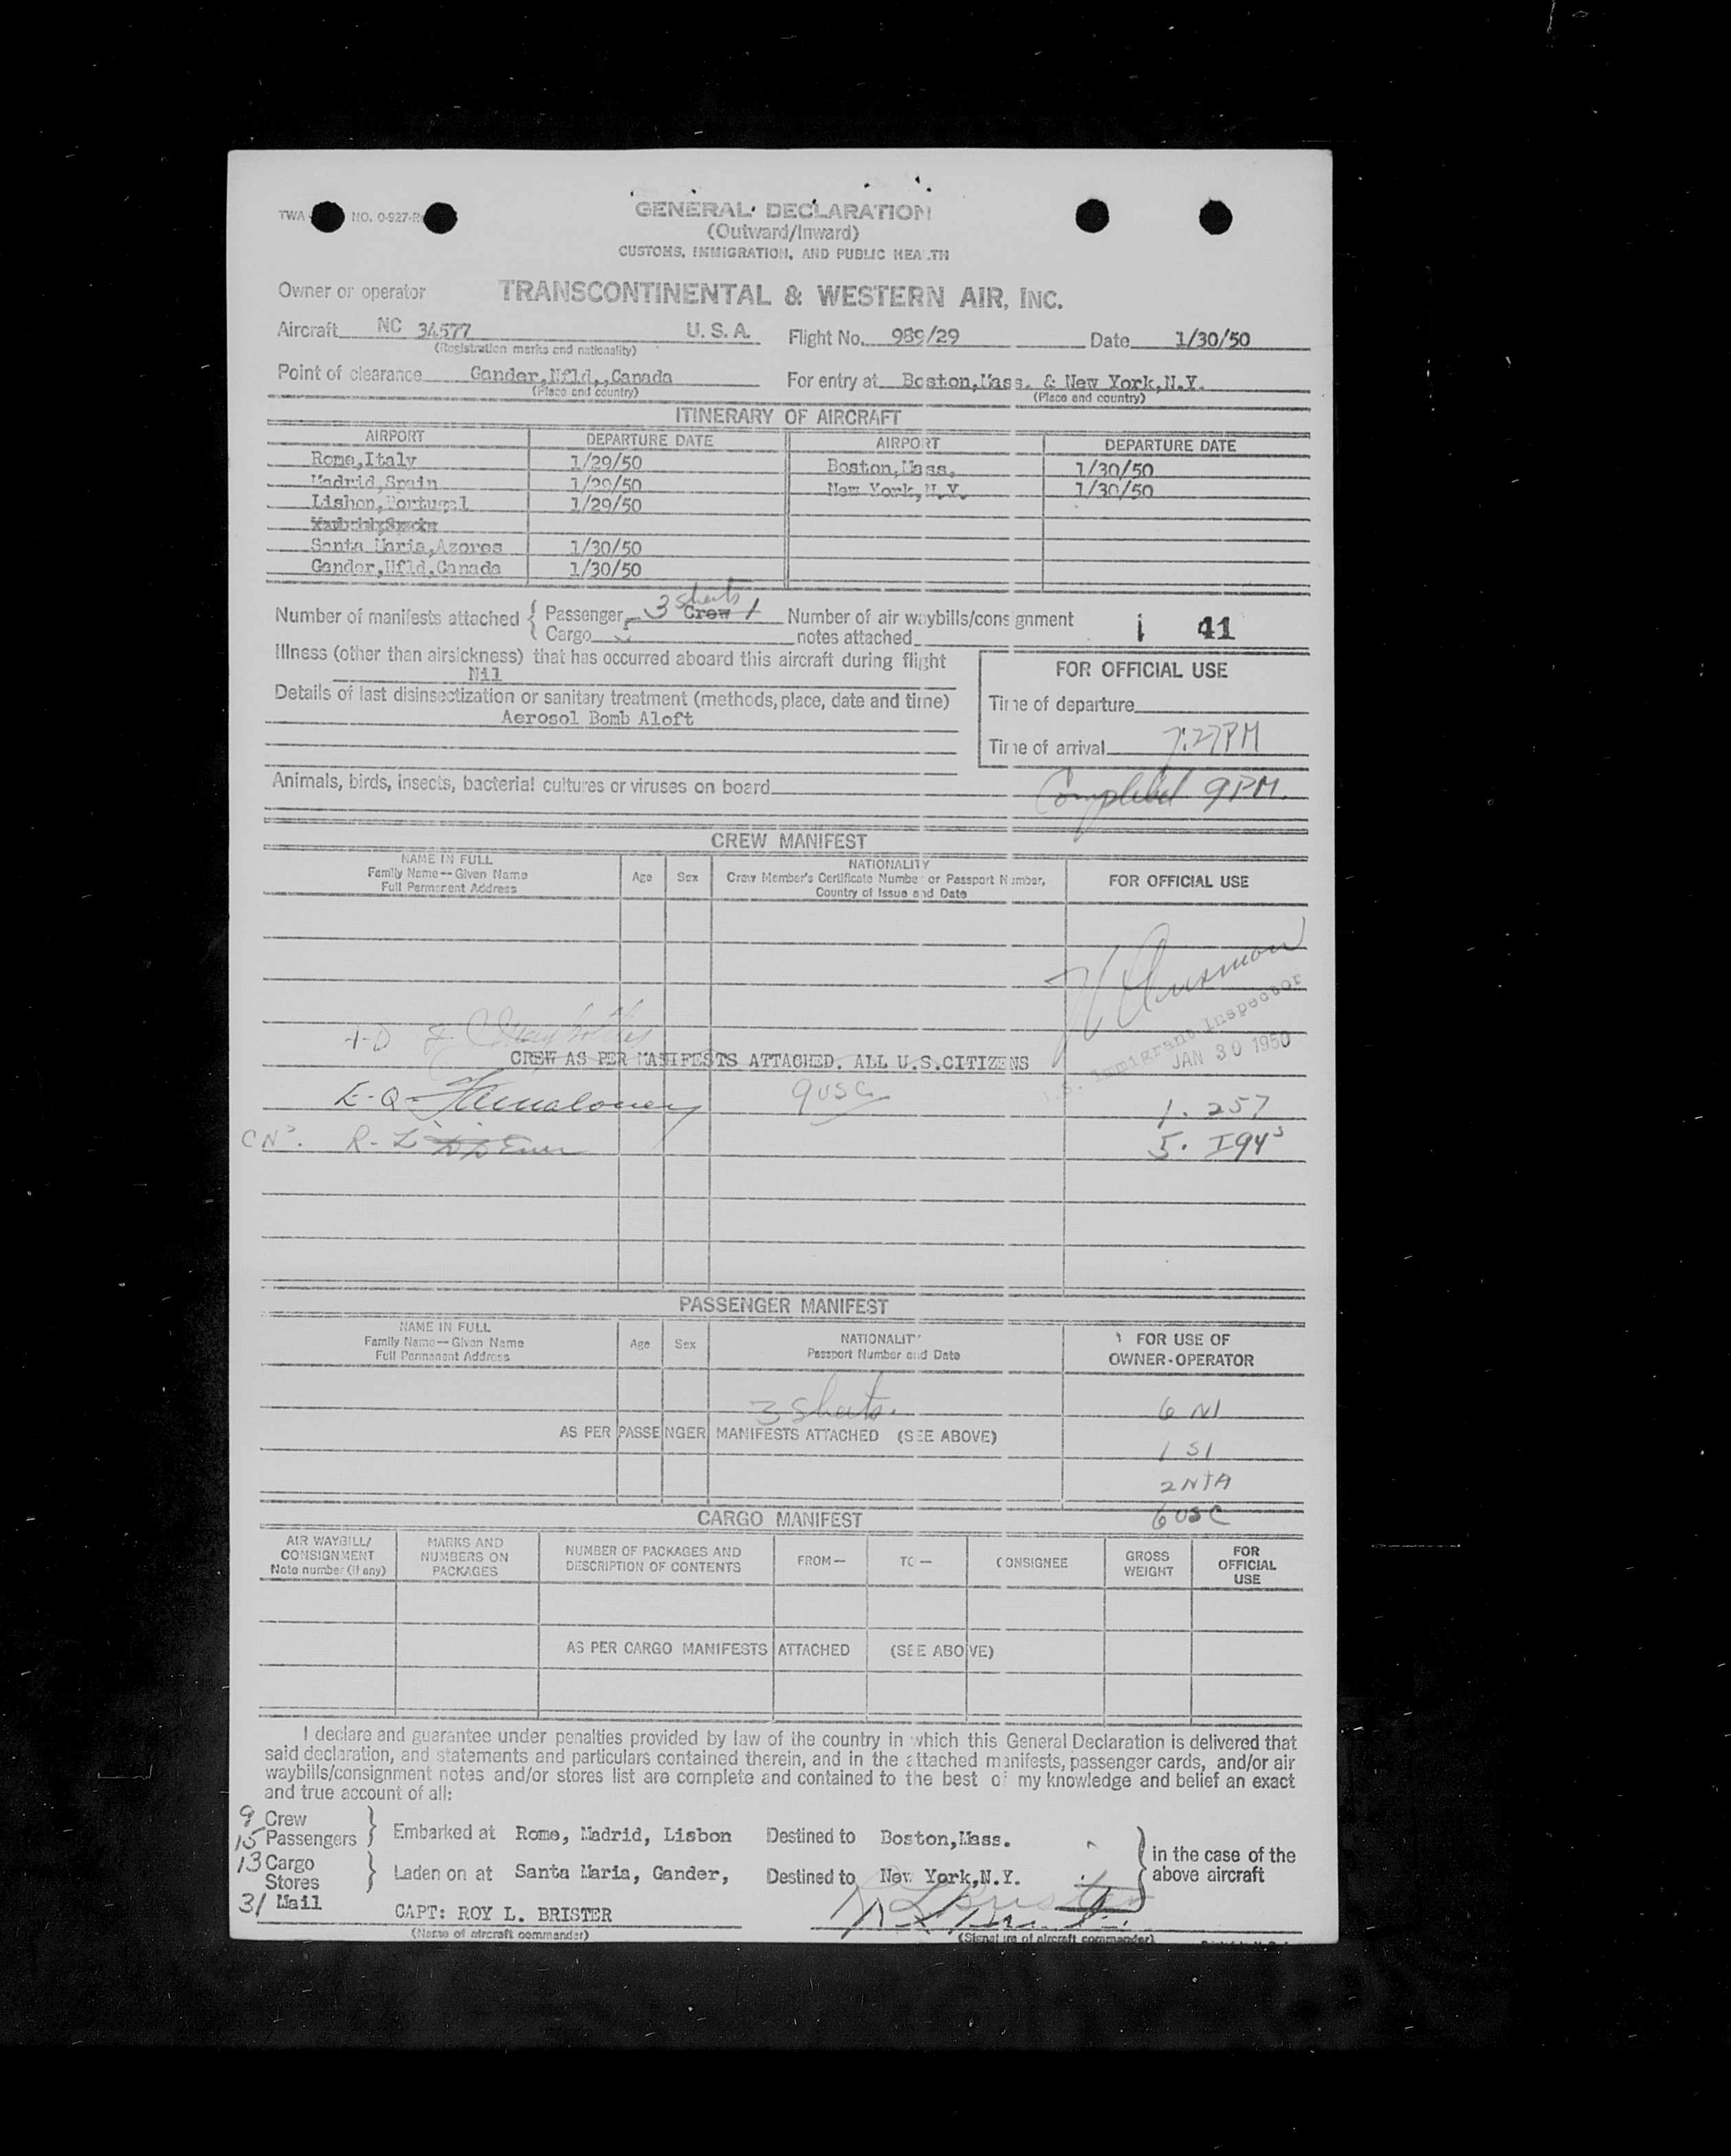 TWA NO. 0-927-R
GENERAL DECLARATION
(Outward/Inward)
CUSTOMS, IMMIGRATION, AND PUBLIC HEA TH
Owner or operator TRANSCONTINENTAL & WESTERN AIR, INC.
Aircraft NC 34577 U.S.A. Flight No. 989/29 Date 1/30/50
(Registration marks and nationality)
Point of clearance Gander,Nfld,,Canada For entry at Boston,Mass. & New York,N.Y.
(Place and country) (Place and country)
ITINERARY OF AIRCRAFT
AIRPORT DEPARTURE DATE AIRPORT DEPARTURE DATE
Rome,Italy 1/29/50 Boston,Mass. 1/30/50
Madrid,Spain 1/29/50 New York,N.Y. 1/30/50
Lisbon,Portugal 1/29/50
Santa Maria,Azores 1/30/50
Gander,Nfld,Canada 1/30/50
Number of manifests attached { Passenger 3 sheets Crew 1 Number of air waybills/consignment
Cargo notes attached 41
Illness (other than airsickness) that has occurred aboard this aircraft during flight
Nil
FOR OFFICIAL USE
Details of last disinsectization or sanitary treatment (methods, place, date and time)
Aerosol Bomb Aloft
Time of departure
Time of arrival 7:27PM
Animals, birds, insects, bacterial cultures or viruses on board
Completed 9PM.
CREW MANIFEST
NAME IN FULL
Family Name--Given Name
Full Permanent Address
Age Sex
NATIONALITY
Crew Member's Certificate Number or Passport Number,
Country of Issue and Date
FOR OFFICIAL USE
U.S. Immigrant Inspector
JAN 30 1950
CREW AS PER MANIFESTS ATTACHED. ALL U.S.CITIZENS
9USC
1. 257
5. I94s
PASSENGER MANIFEST
NAME IN FULL
Family Name--Given Name
Full Permanent Address
Age Sex
NATIONALIT
Passport Number and Date
FOR USE OF
OWNER-OPERATOR
3 sheets. 6 NI
AS PER PASSENGER MANIFESTS ATTACHED (SEE ABOVE)
1 SI
2 NIA
6 USC
CARGO MANIFEST
AIR WAYBILL/
CONSIGNMENT
Note number (if any)
MARKS AND
NUMBERS ON
PACKAGES
NUMBER OF PACKAGES AND
DESCRIPTION OF CONTENTS
FROM— TO— CONSIGNEE
GROSS
WEIGHT
FOR
OFFICIAL
USE
AS PER CARGO MANIFESTS ATTACHED (SEE ABOVE)
I declare and guarantee under penalties provided by law of the country in which this General Declaration is delivered that
said declaration, and statements and particulars contained therein, and in the attached manifests, passenger cards, and/or air
waybills/consignment notes and/or stores list are complete and contained to the best of my knowledge and belief an exact
and true account of all:
9 Crew
15 Passengers } Embarked at Rome, Madrid, Lisbon Destined to Boston,Mass.
13 Cargo
Stores } Laden on at Santa Maria, Gander, Destined to New York,N.Y.
} in the case of the
above aircraft
31 Mail
CAPT: ROY L. BRISTER
(Name of aircraft commander) (Signature of aircraft commander)